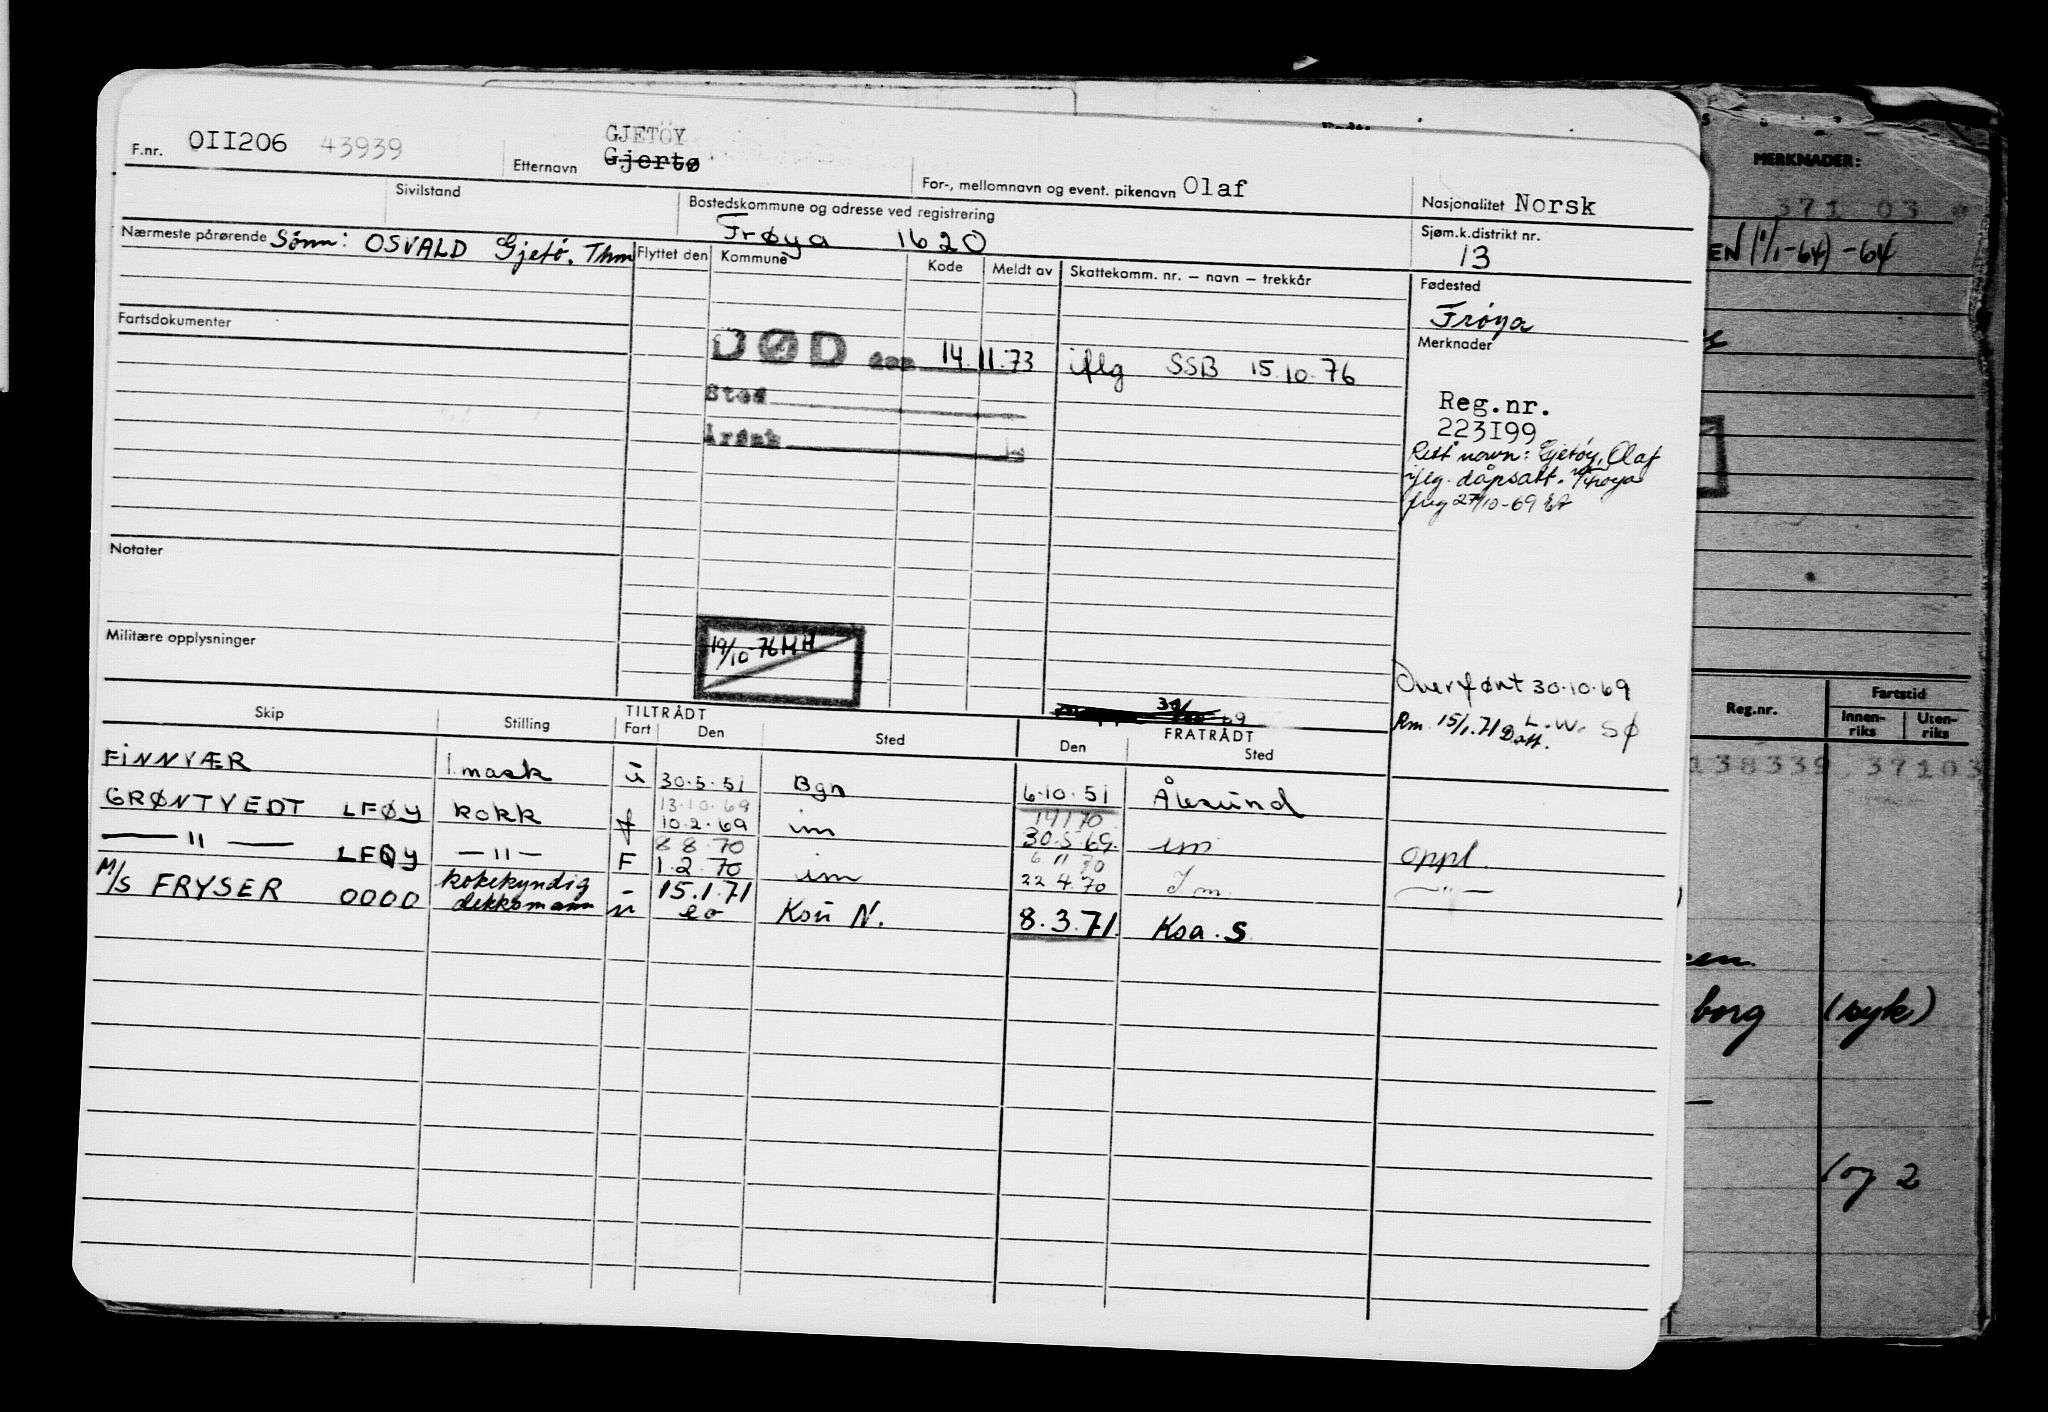 F.nr. OII206 43939 Etternavn GJETÖY
Gjertø
For-, mellomnavn og event. pikenavn Olaf
Nasjonalitet Norsk
Sivilstand
Bostedskommune og adresse ved registrering
Frøya 1620
Sjøm.k.distrikt nr.
13
Nærmeste pårørende Sønn: OSVALD Gjetö. Thm
Flyttet den Kommune Kode Meldt av Skattekomm. nr. – navn – trekkår
Fødested
Frøya
Fartsdokumenter
DØD den 14.11.73 iflg SSB 15.10.76
Sted
Årsak
Merknader
Reg.nr.
223I99
Rett navn: Gjetøy, Olaf
iflg. dåpsatt. Frøya
27/10-69
Notater
Militære opplysninger
19/10-76 MH
Overført 30.10.69
Rm 15/1.71 L.W. SØ
Datt.
69
Skip Stilling TILTRÅDT Fart Den Sted FRATRÅDT Den Sted
FINNVÆR 1. mask u 30.5.51 Bgn 6.10.51 Ålesund
13.10.69
GRØNTVEDT LFØY kokk f 10.2.69 im 30.5.69 im oppl.
8 8 70 6 11 70
— " — LFØY — " — F 1.2.70 im 22 4.70 Im — " —
M/S FRYSER 0000 kokekyndig dekksmann - 15.1.71
u eo Ksu N. 8.3.71. Ksa. S
MERKNADER:
371 03
EN (1/1-64) -64
Reg.nr.
Fartstid
Innen-
riks
Uten-
riks
138339 37103
borg (syk)
og 2